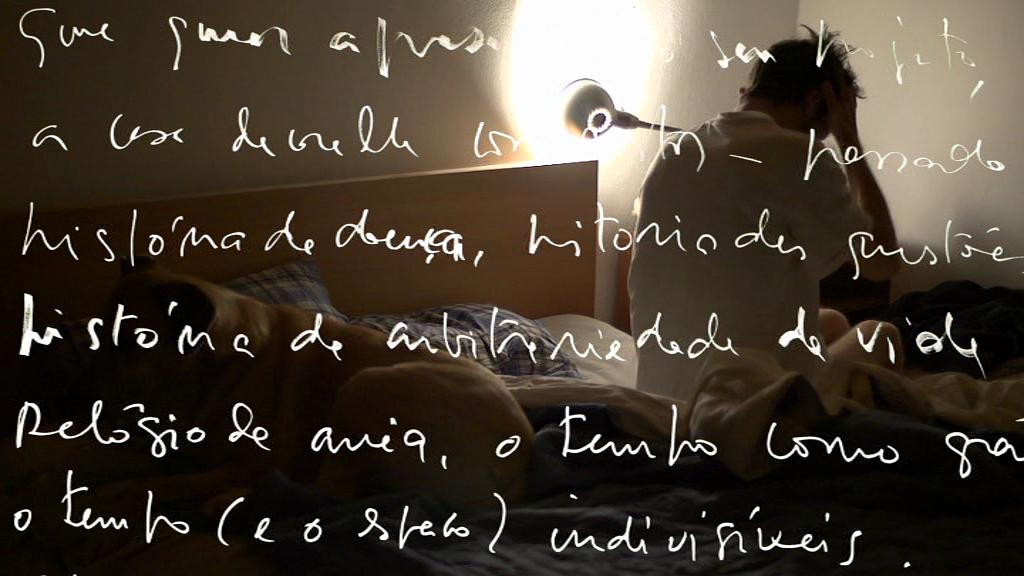 que quer apresen seu projeto,
a casa da velha – passado
história de doença, história das questões
história de arbitrariedade da vida
Relógio de areia, o tempo como grã
o tempo (e o espaço) indivisíveis.